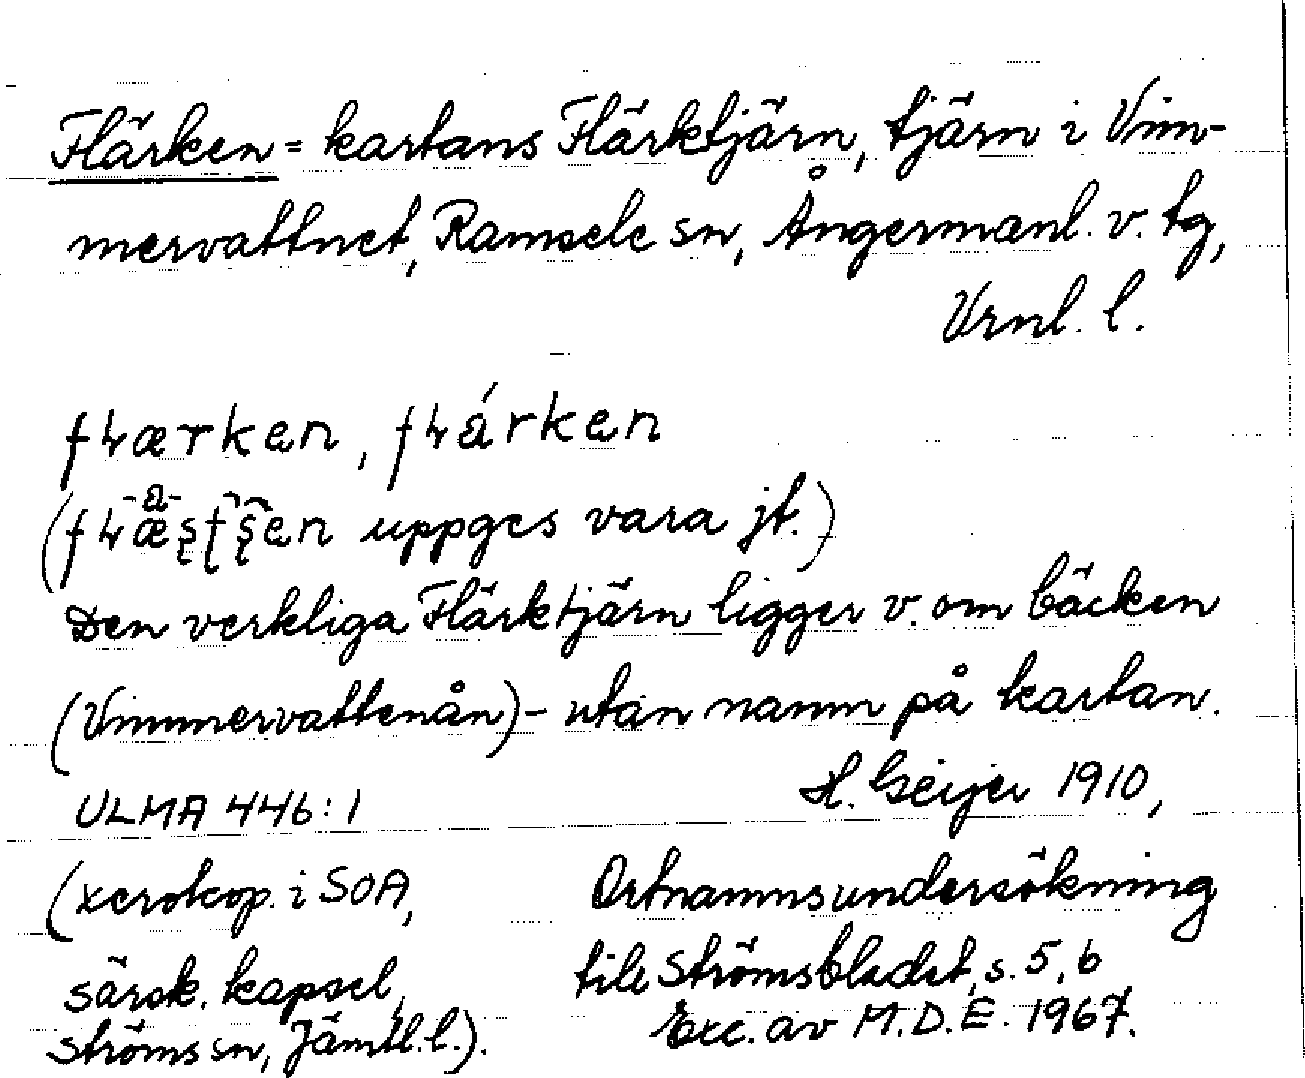 Flärken = kartans Flärktjärn, tjärn i Vim-
mervattnet, Ramsele sn, Ångermanl. v. tg,
Vrnl. l.
uppges vara jt.)
Den verkliga Flärktjärn ligger v. om bäcken
(Vimmervattenån) - utan namn på kartan.
ULMA 446:1 H. Geijer 1910,
(xerokop. i SOA, Ortnamnsundersökning
särsk. kapsel, till Strömsbladet, s. 5, 6
Ströms sn, Jämtl. l.). Exc. av M.D.E. 1967.